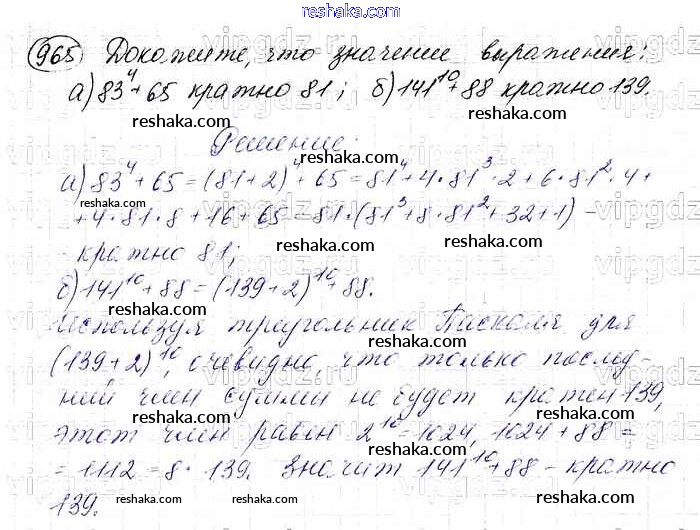 reshaka.com
965 Докажите, что значение выражения:
а) 83⁴+65 кратно 81; б) 141¹⁰+88 кратно 139.
reshaka.com reshaka.com
Решение:
а) 83⁴+65=(81+2)⁴+65=81⁴+4·81³·2+6·81²·4+
+4·81·8+16+65=81·(81³+8·81²+32+1) –
кратно 81;
б) 141¹⁰+88=(139+2)¹⁰+88.
Используя треугольник Паскаля для
(139+2)¹⁰, очевидно, что только послед-
ний член суммы не будет кратен 139,
этот член равен 2¹⁰=1024, 1024+88=
=1112=8·139. Значит 141¹⁰+88 – кратно
139.
reshaka.com reshaka.com reshaka.com